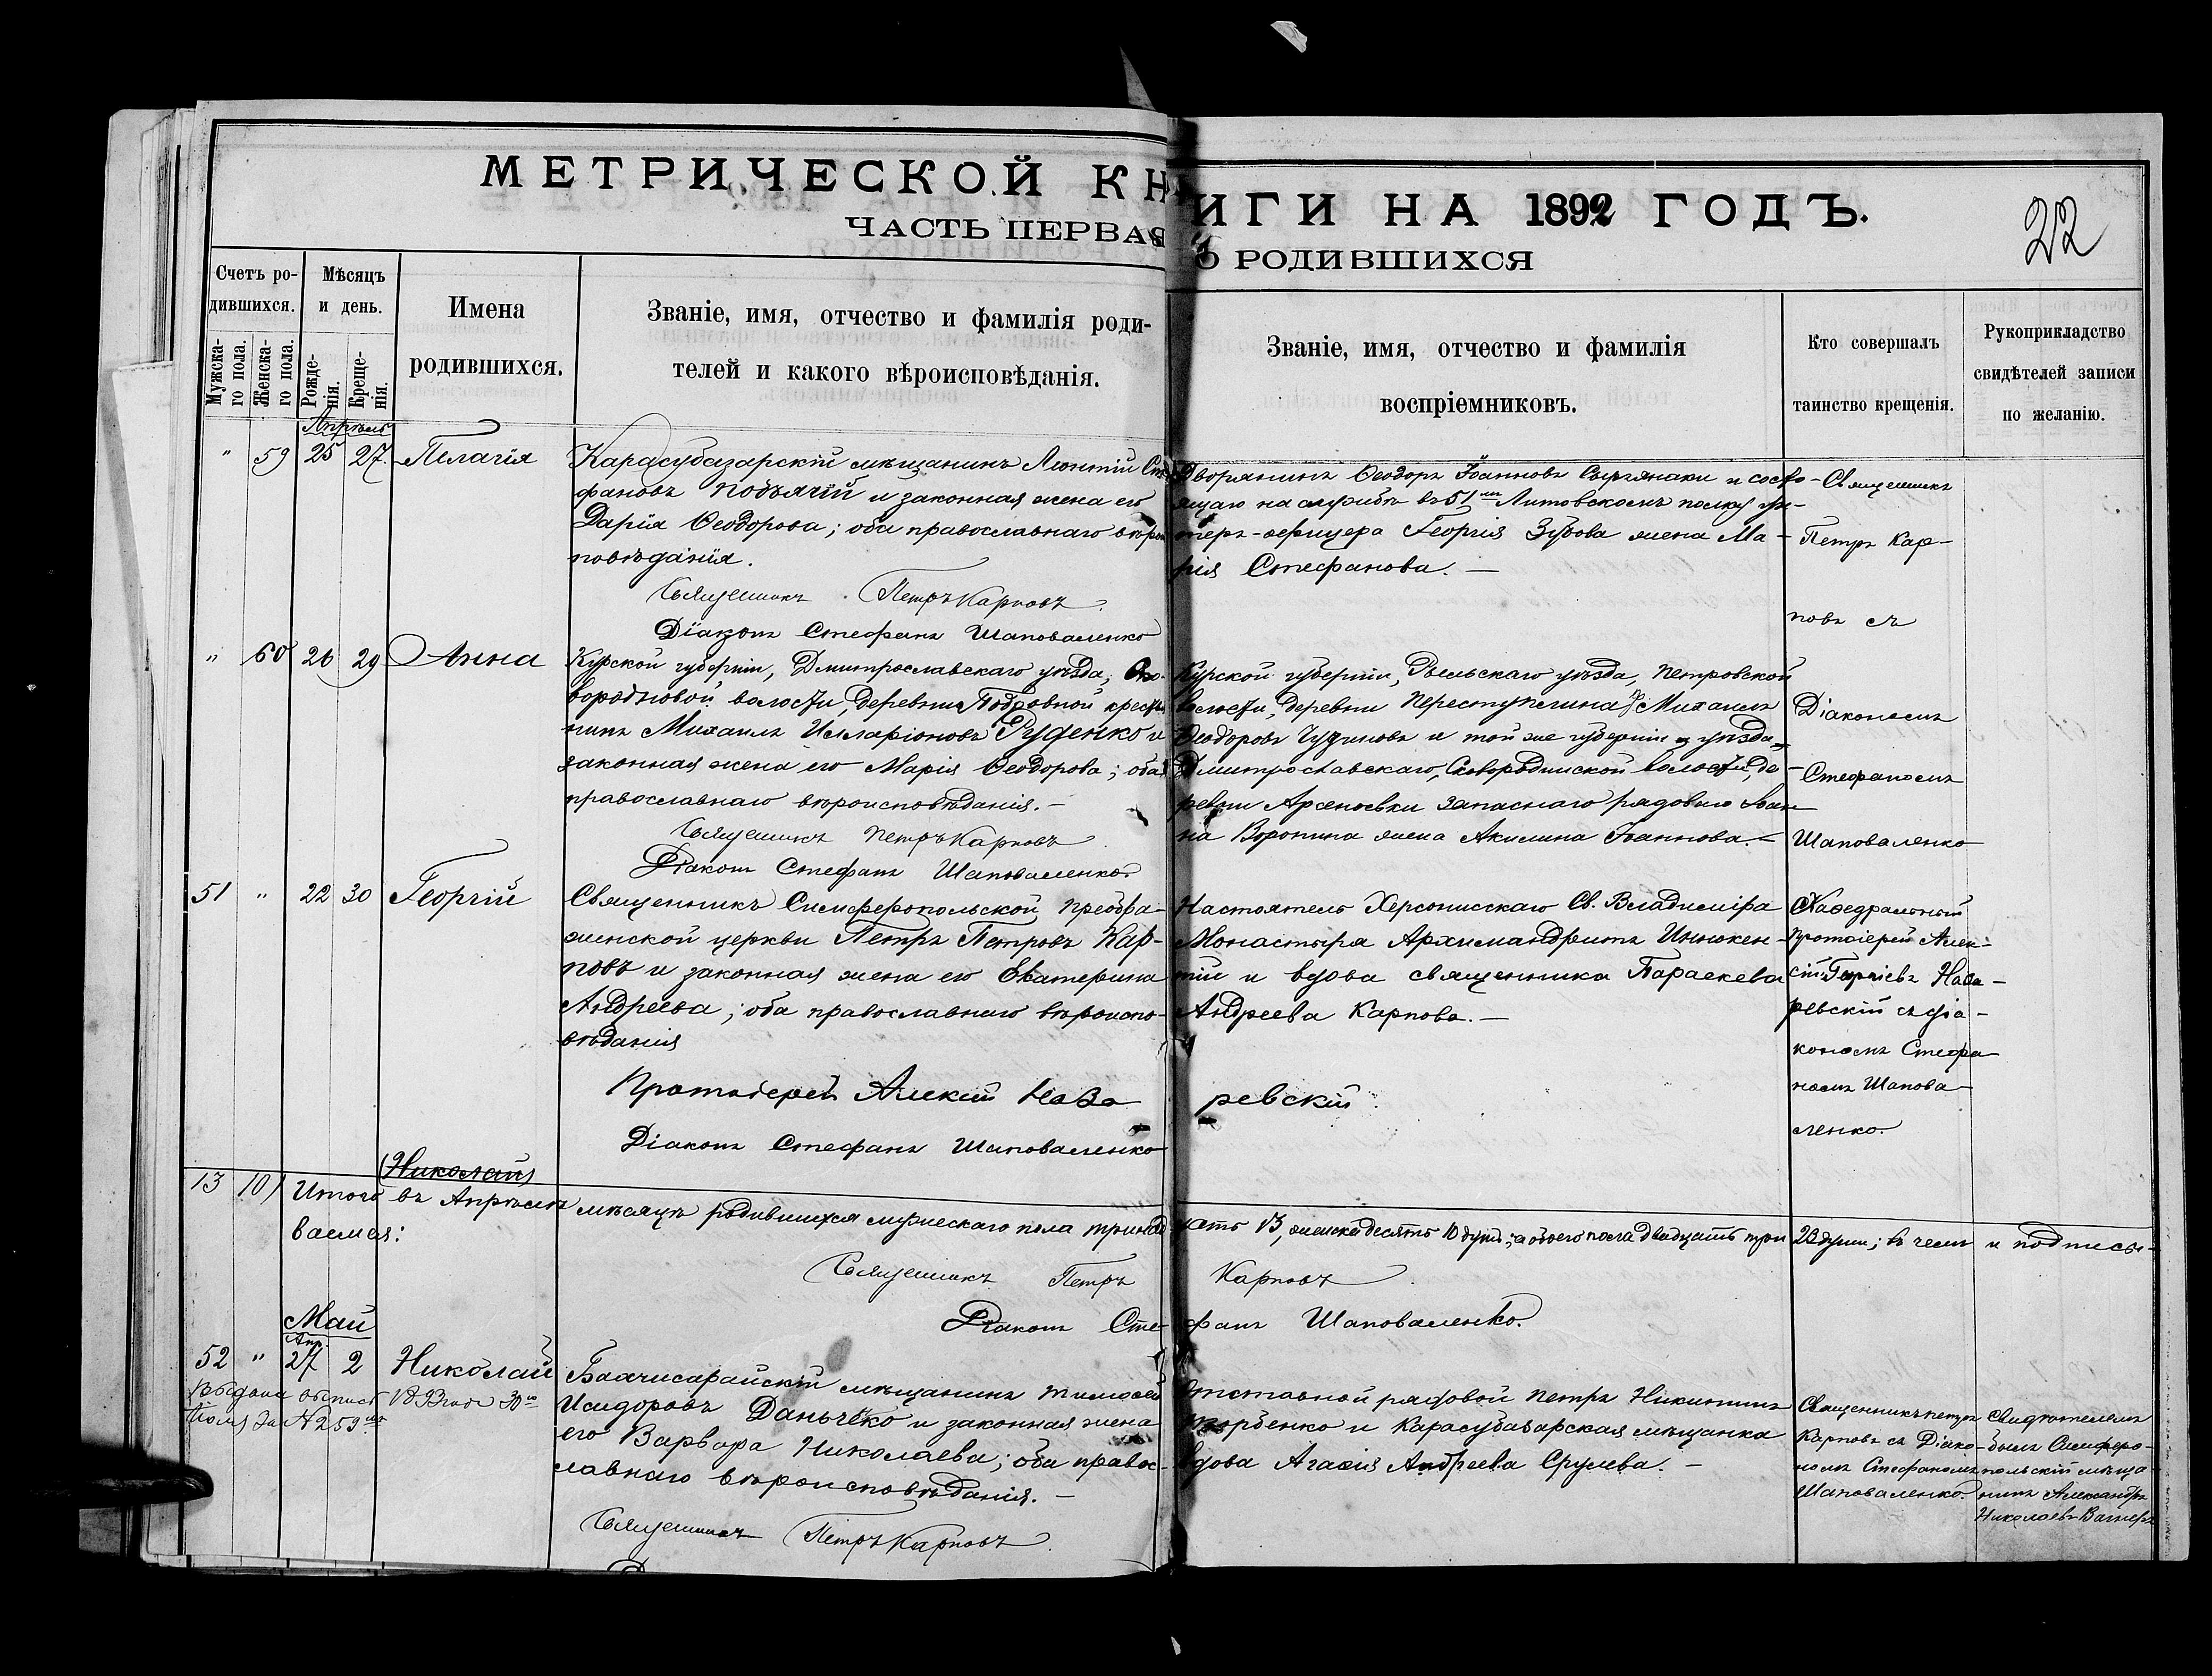 МЕТРИЧЕСКОЙ КНИГИ НА 1892 ГОДЪ.
22
ЧАСТЬ ПЕРВАЯ О РОДИВШИХСЯ
Счетъ ро-
дившихся.
Мужска-
го пола.
Женска-
го пола.
Мѣсяцъ
и день.
Рожде-
нія.
Креще-
нія.
Имена
родившихся.
Званіе, имя, отчество и фамилія роди-
телей и какого вѣроисповѣданія.
Званіе, имя, отчество и фамилія
воспріемниковъ.
Кто совершалъ
таинство крещенія.
Рукоприкладство
свидѣтелей записи
по желанію.
Апрѣль
" 59 25 27. Пелагія
Карасубазарскій мѣщанинъ Леонтій Сте-
фановъ Подъячій и законная жена его
Дарія Ѳеодорова; оба православнаго вѣрои
повѣданія.
Священникъ Петръ Карповъ
Діаконъ Стефанъ Шаповаленко
Дворянинъ Ѳеодоръ Іоанновъ и состо-
ящаго на службѣ въ 51мъ Литовскомъ полку ун-
теръ-офицера Георгія Зубова жена Ма-
рія Стефанова. —
Священникъ
Петръ Кар-
повъ съ
Діакономъ
Стефаномъ
Шаповаленко
" 60 26 29 Анна
Курской губерніи, Дмитрославскаго уѣзда, Ско-
волости, деревни крестья
нинъ Михаилъ Илларіоновъ Руденко и
законная жена его Марія Ѳеодорова; оба
православнаго вѣроисповѣданія. —
Священникъ Петръ Карповъ
Діаконъ Стефанъ Шаповаленко.
Курской губерніи, Рыльскаго уѣзда, Петровской
волости, деревни Михаилъ
Ѳеодоровъ и той же губерніи уѣзда
Дмитрославскаго, Сковородинской волости, де-
ревни Арсеновки запаснаго рядового Іоан-
на Воронина жена Акилина Іоаннова. —
51 " 22 30 Георгій
Священникъ Симферопольской Преобра-
женской церкви Петръ Петровъ Кар-
повъ и законная жена его Екатерина
Андреева; оба православнаго вѣроиспо-
вѣданія
Протоіерей Алексій Назаревскій
Діаконъ Стефанъ Шаповаленко
Настоятель Херсонисскаго Св. Владиміра
Монастыря Архимандритъ Иннокен-
тій и вдова священника Параскева
Андреева Карпова. —
Каѳедральный
Протоіерей Алек-
сій Георгіевъ Наза-
ревскій съ діа-
кономъ Стефа-
номъ Шапова-
ленко.
Николай
13 10 Итого въ Апрѣлѣ мѣсяцѣ родившихся мужескаго пола тринадцать 13, женска десять 10 душъ; а обоего пола двадцать три 23 души; въ чемъ и подписы-
ваемся:
Священникъ Петръ Карповъ
Діаконъ Стефанъ Шаповаленко.
Май
Апр.
52 " 27 2 Николай
Выдана выпись 1893 года 30го
Іюля за № 259мъ
Бахчисарайскій мѣщанинъ Тимоѳей
Исидоровъ Данъченко и законная жена
его Варвара Николаева; оба правос-
лавнаго вѣроисповѣданія. —
Священникъ Петръ Карповъ
Отставной рядовой Петръ Никитинъ
и Карасубазарская мѣщанка
вдова Агаѳія Андреева Срулева. —
Священникъ Петръ
Карповъ съ Діако-
номъ Стефаномъ
Шаповаленко.
Свидѣтелемъ
былъ Симферо-
польскій мѣща-
нинъ Александръ
Николаевъ Вагнеръ